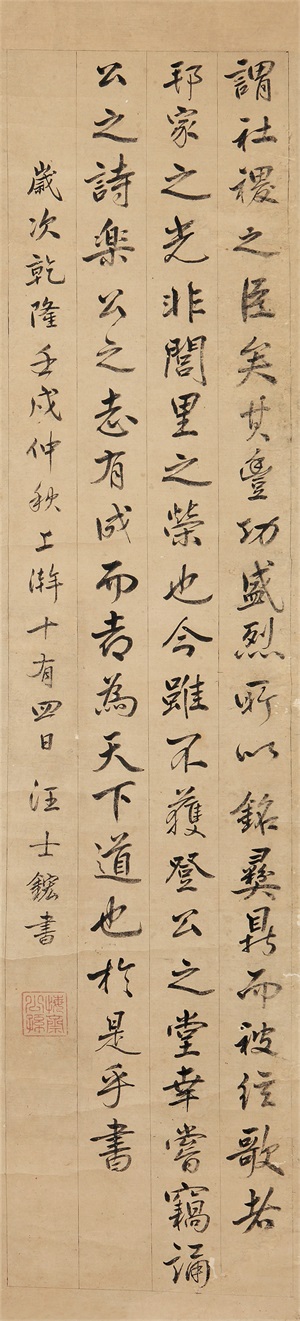 謂社稷之臣矣其豐功盛烈所以銘彝鼎而被絃歌者
邦家之光非閭里之榮也今雖不獲登公之堂幸嘗竊誦
公之詩樂公之志有成而喜為天下道也於是乎書
歲次乾隆壬戌仲秋上澣十有四日汪士鋐書